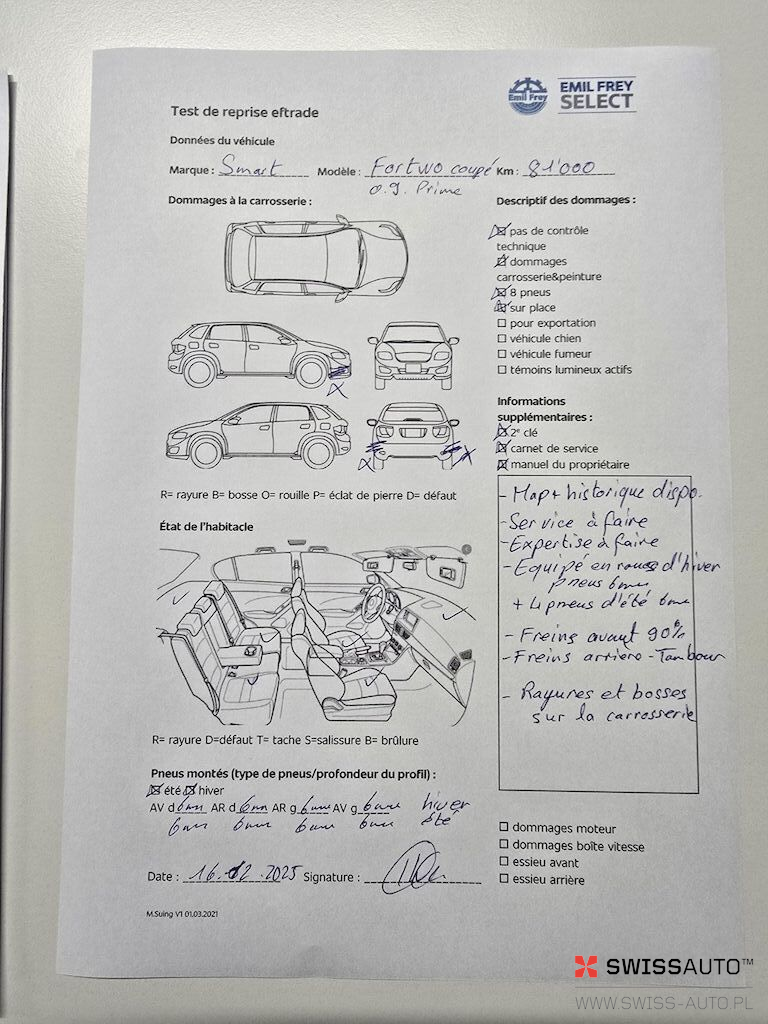 Emil Frey
EMIL FREY
SELECT
Test de reprise eftrade
Données du véhicule
Marque : Smart Modèle : Fortwo coupé Km : 81'000
0.9. Prime
Dommages à la carrosserie :
R= rayure B= bosse O= rouille P= éclat de pierre D= défaut
État de l'habitacle
R= rayure D=défaut T= tache S=salissure B= brûlure
Pneus montés (type de pneus/profondeur du profil) :
☒ été ☒ hiver
AV d 6mm AR d 6mm AR g 6mm AV g 6mm hiver
6mm 6mm 6mm 6mm été
Date : 16.12.2025 Signature :
M.Suing V1 01.03.2021
Descriptif des dommages :
☒ pas de contrôle
technique
☒ dommages
carrosserie&peinture
☒ 8 pneus
☒ sur place
☐ pour exportation
☐ véhicule chien
☐ véhicule fumeur
☐ témoins lumineux actifs
Informations
supplémentaires :
☒ 2e clé
☒ carnet de service
☒ manuel du propriétaire
- Map + historique dispo.
- Service à faire
- Expertise à faire
- Equipé en roues d'hiver
pneus 6mm
+ 4 pneus d'été 6mm
- Freins avant 90%
- Freins arriere - Tambour
- Rayures et bosses
sur la carrosserie
☐ dommages moteur
☐ dommages boîte vitesse
☐ essieu avant
☐ essieu arrière
SWISSAUTO™
WWW.SWISS-AUTO.PL